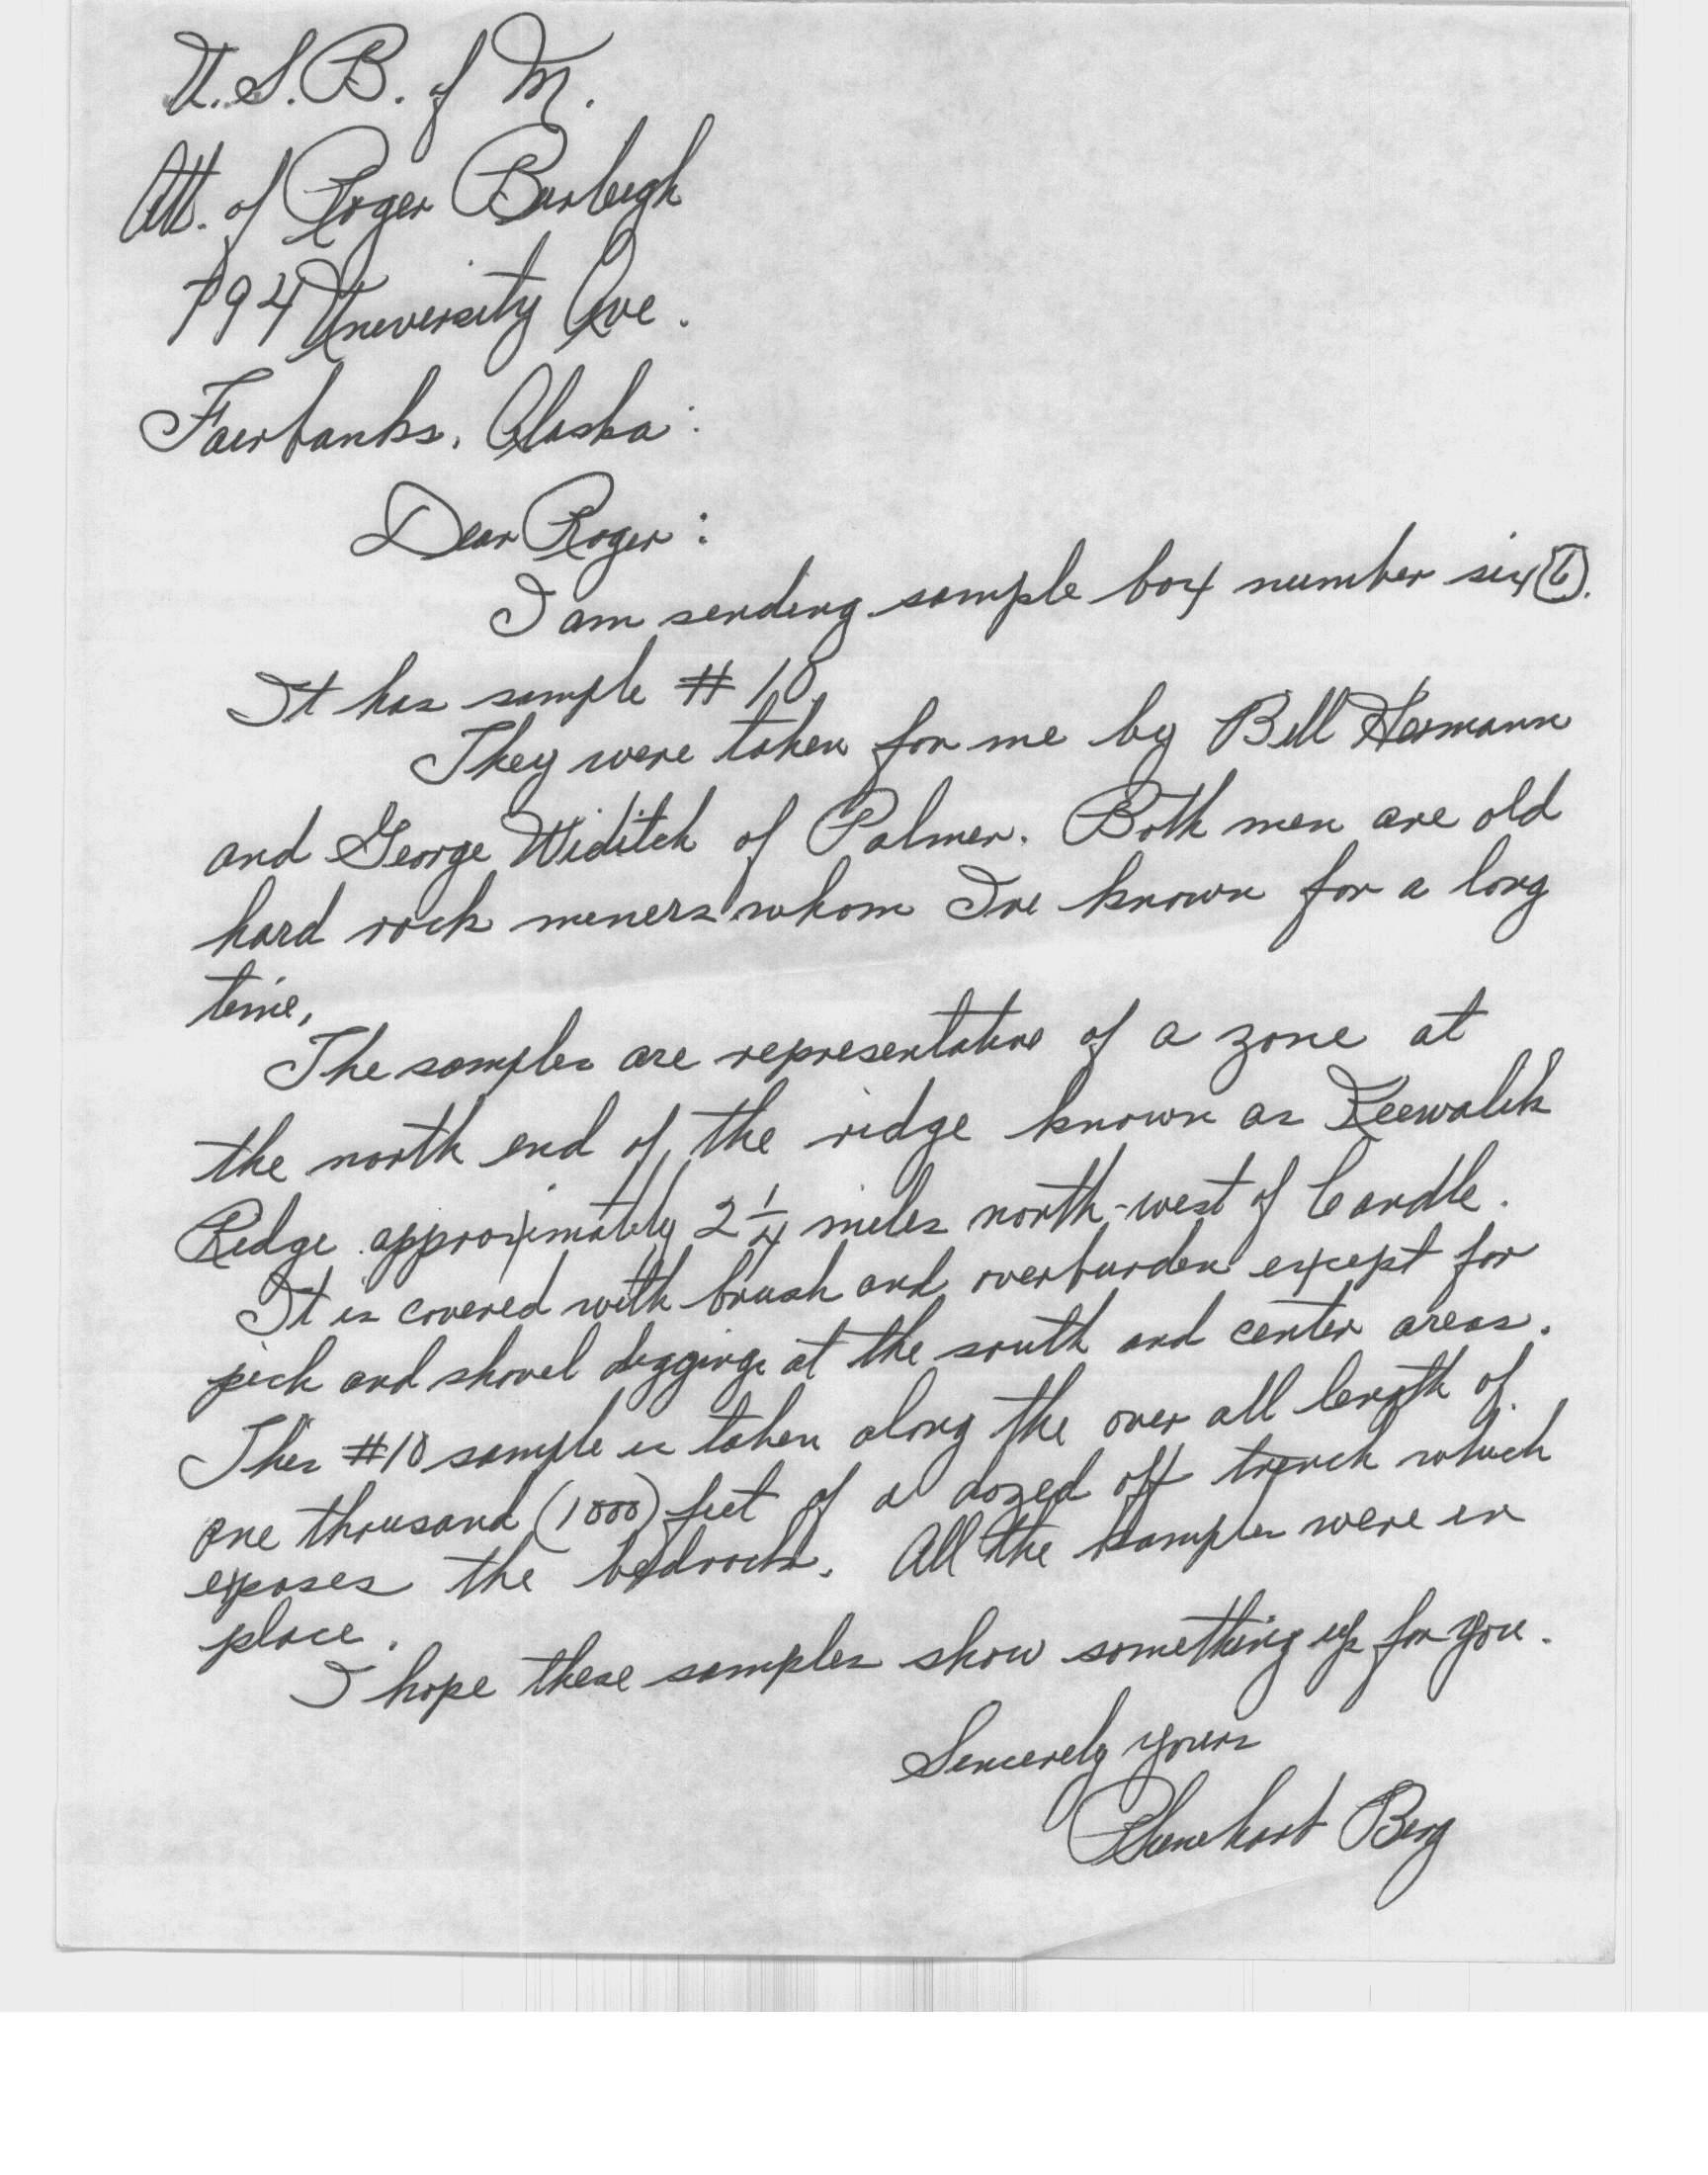 U.S.B. of M.
Att. of Roger Burleigh
794 University Ave.
Fairbanks, Alaska:
Dear Roger:
I am sending sample box number six (6).
It has sample # 10
They were taken for me by Bill Hermann
and George Widitch of Palmer. Both men are old
hard rock miners whom I've known for a long
time,
The samples are representative of a zone at
the north end of the ridge known as Keewalik
Ridge approximately 2 1/4 miles north-west of Candle.
It is covered with brush and overburden except for
pick and shovel diggings at the south and center areas.
This #10 sample is taken along the over all length of
one thousand (1000) feet of a dozed off trench which
exposes the bedrock. All the samples were in
place.
I hope these samples show something up for you.
Sincerely yours
Rhinehart Berg